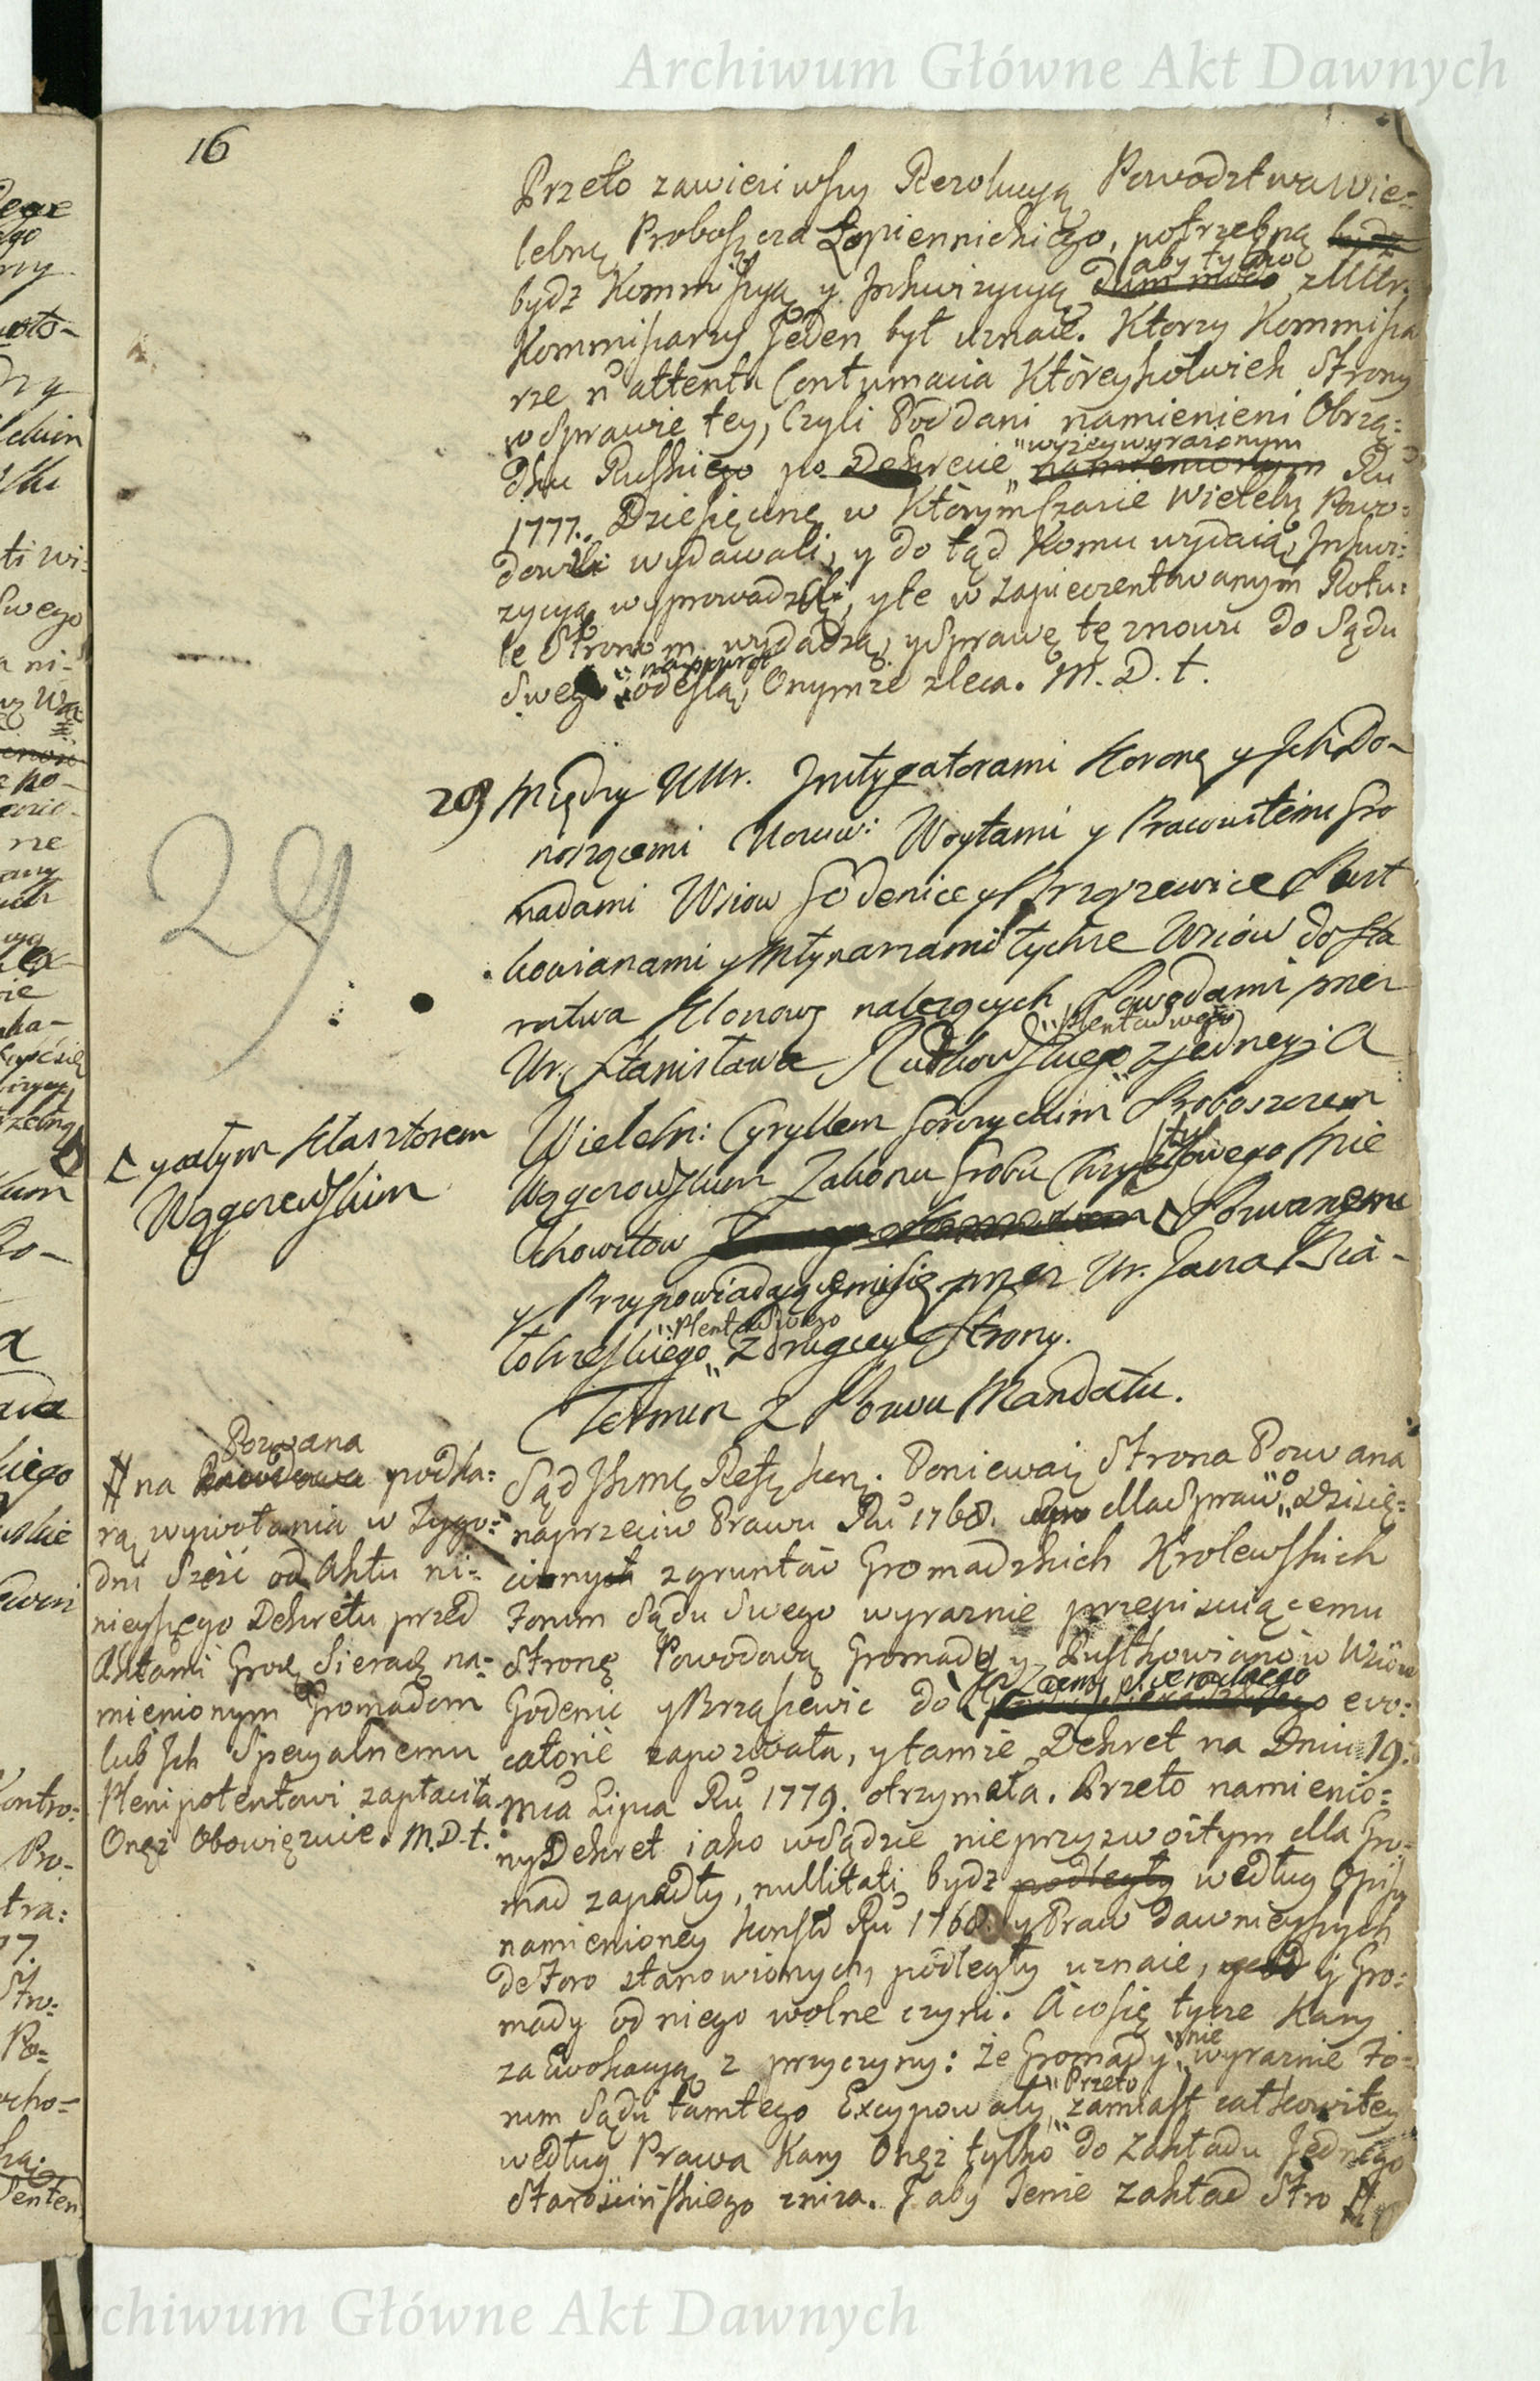 Archiwum Główne Akt Dawnych
16
Przeto zawieriwszy Rezolucyą Powodztwa Wie=
lebnę Proboszcza Łopiennickiego, potrzebną bydz
aby tylko
bydz Kommissyą y Jnkwizycyą dum modo z UUr.
Kommissarzy Jeden był uznaie. Ktorzy Kommissa
rze n attenta Contumacia Którеykolwiek Strony
w Sprawie tey, Czyli Poddani namienieni Obrzą=
"wyżey wyrażonym
dku Ruskiego po Dekrecie namienionym Ru
1777. Dziesięcinę w Którym Czasie Wieleb. Powo=
dowi wydawali, y do tąd Komu wydaią, Jnkwi=
zycyą wyprowadzą, yte w zapieczentowanym Rotu=
le Stronom wydadzą, y Sprawę tę znowu do Sądu
napowrot
Swego odeslą, Onymże zleca. M. D. t.
29 Między UUr. Instygatorami Koronę y Jch Do-
noszącemi Uczciw: Woytami y Pracowitemi Gro
madami Wsiow Godenice y Brząszewice Pust
kowianami y Młynarzami tychże Wsiów do Sta
rostwa Klonowę należących Powodami przez
"Plenta swego
Ur. Stanisława Rutkowskiego z jedney; A
Wieleb: Cyryllem Gorzyckim Proboszczem
Wągerowskim Zakonu Grobu Chrystusowego Mie
chowitow Pozwanemi
y Przypowiadaiącemi się przez Ur. Jana Bia-
"Plenta Swego
łobrzeskiego z drugiey Strony.
Termin z Pozwu Mandatu.
29
y całym Klasztorem
Wągerewskim
Sąd Jkmę Refę knę. Poniewaz Strona Pozwana
naprzeciw Prawu Ru 1768. dla Spraw Dziesię=
cinnych z gruntów Gromadzkich Krolewskich
Forum Sądu Swego wyraznie przepisuiącemu
Stronę Powodową Gromady y Pustkowianów Wsiów
Ziemę Sieradzkiego
Godenic y Brząszewic do evo=
catorie zapozwała, y tamże Dekret na Dniu 19.
mca Lipca Ru 1779. otrzymała. Przeto namienio=
ny Dekret iako w Sądzie nieprzyzwoitym dla Gro=
mad zapadły, nullitati bydz podległy według Opisu
namienioney Konst Ru 1768. y Praw dawnieyszych
de Foro stanowionych, podległy uznaie, y Gro=
mady od niego wolne czyni. A co się tycze Kary
"nie
za Ewokacyą z przyczyny: że Gromady wyraznie Fo=
"Przeto
rum Sądu tamtego Excypowały, zamiast całkowitey
według Prawa Kary Onęż tylko do Zakładu Jednego
Staroscińskiego zniza. J aby Tenże zakład Stro #
Pozwana
# na Powodowa pod ka=
rą wywołania w Tygo=
dni Sześć od Aktu ni=
nieyszego Dekretu przed
Aktami Grodz Sieradz na=
mienionym Gromadom
lub Jch Specyalnemu
Plenipotentowi zapłaciła
Onęż Obowięzuie. M.D.t.
Archiwum Główne Akt Dawnych